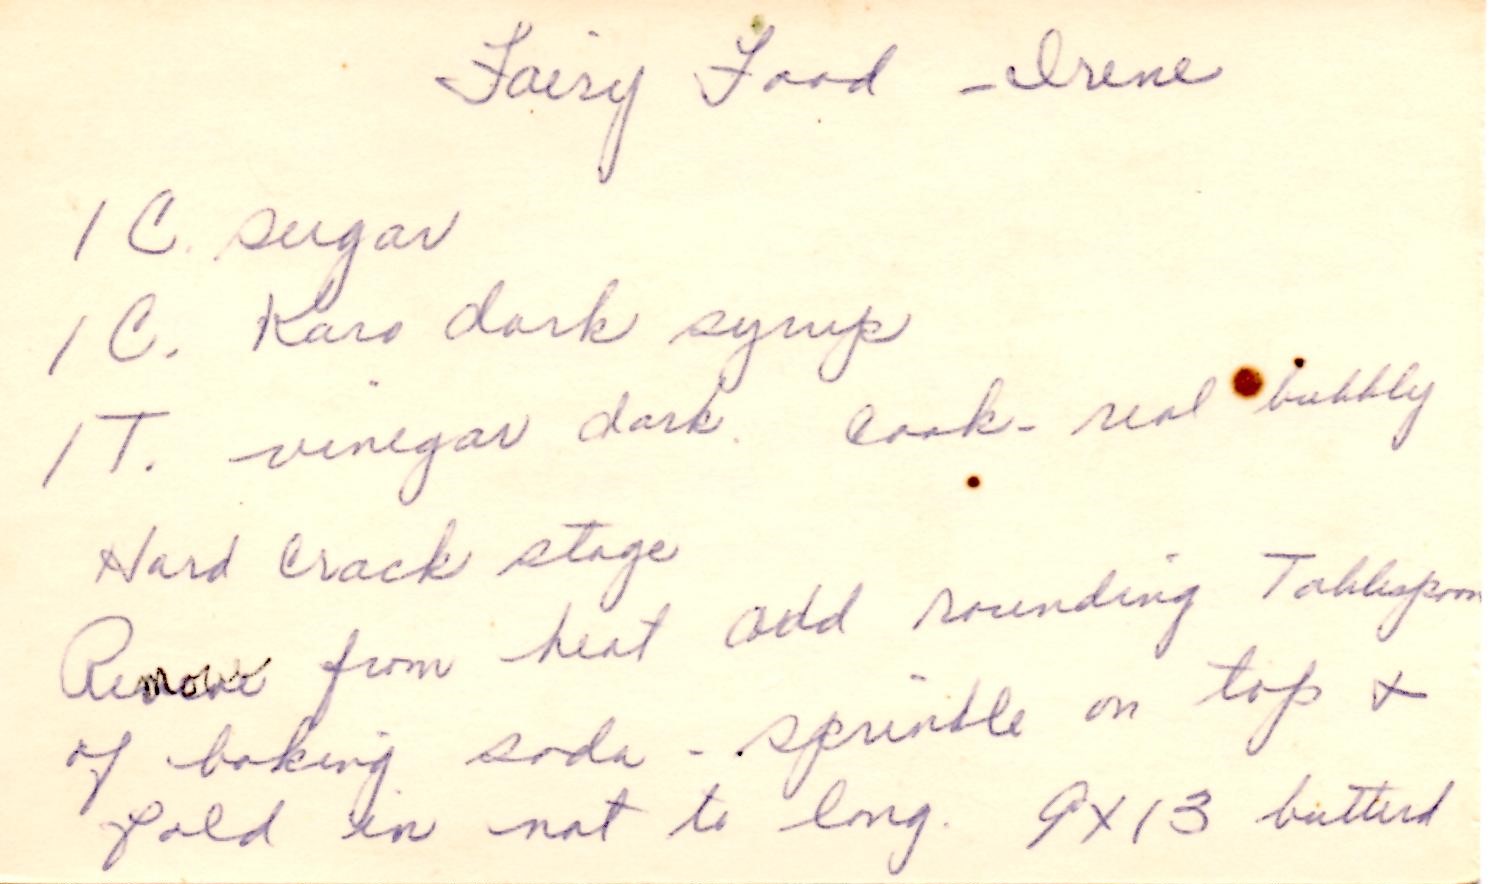 Fairy Food - Irene
1 C. sugar
1 C. Karo dark syrup
1 T. vinegar dark. Cook - real bubbly
Hard Crack stage
Remove from heat add rounding Tablespoon
of baking soda - sprinkle on top +
fold in not to long. 9X13 butterd